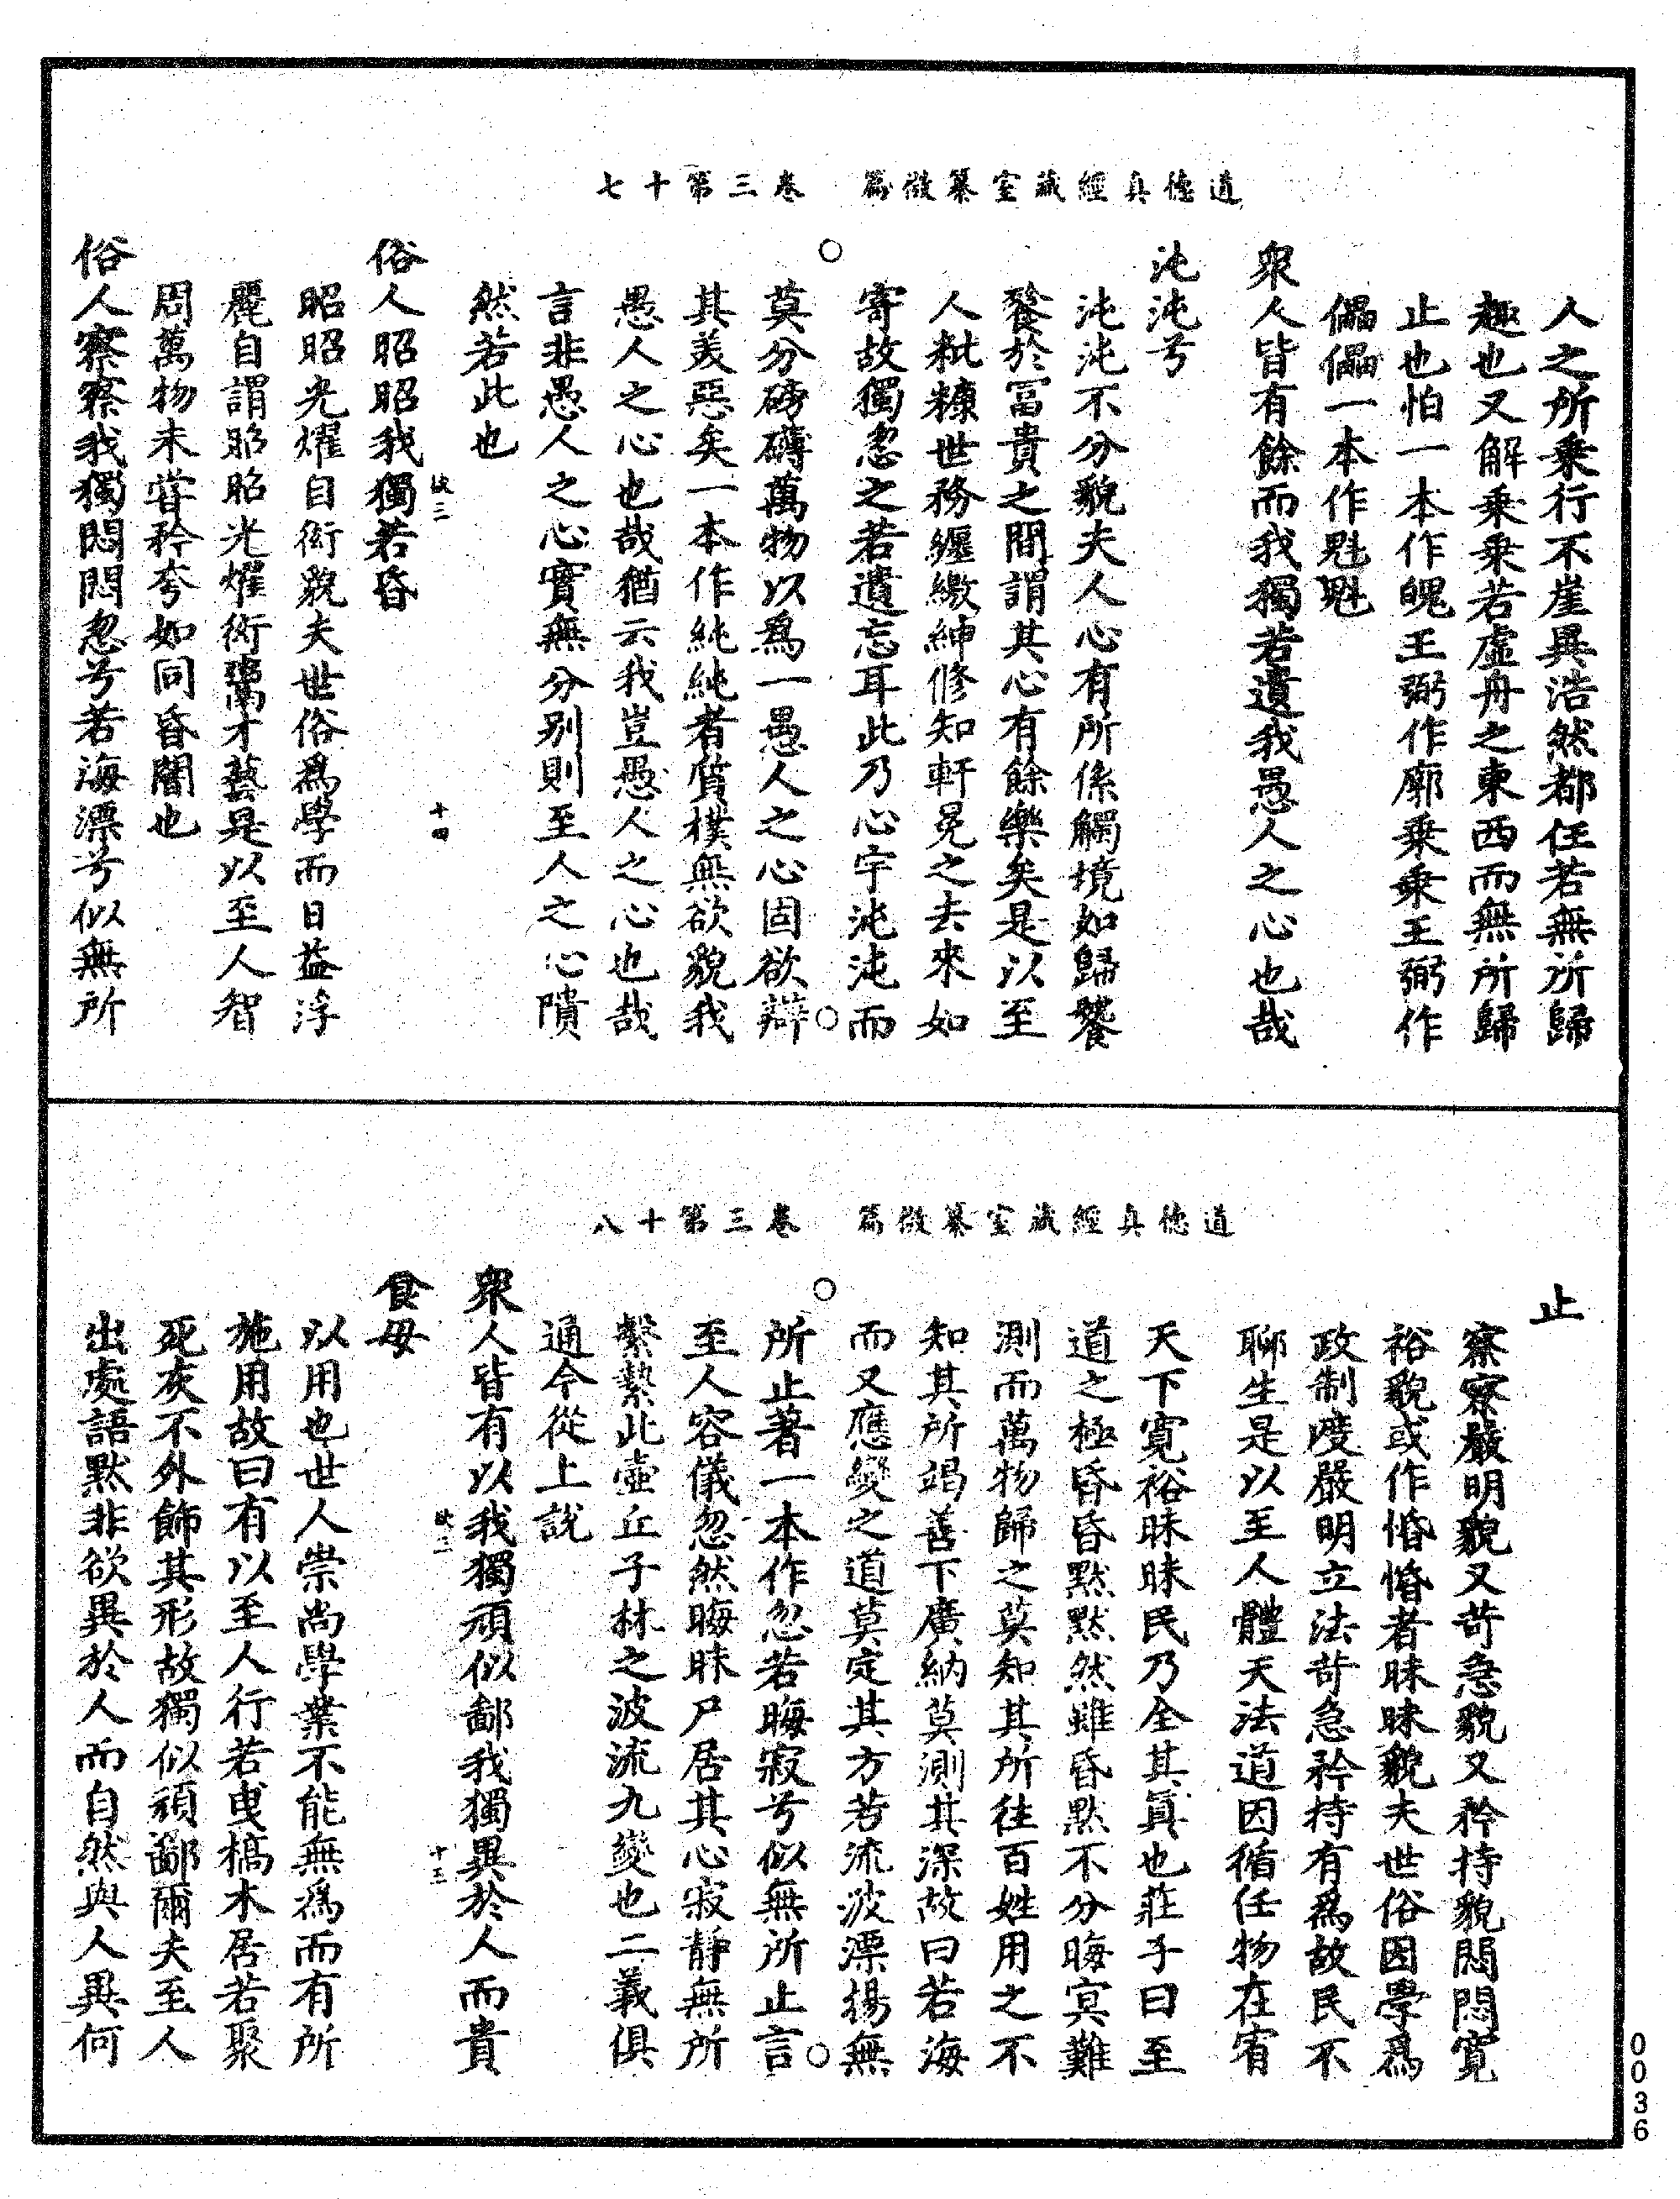 道德真經藏室纂微篇　卷三第十七
人之所乘行不崖異浩然都任若無所歸
趣也又解乘乘若虛舟之東西而無所歸
止也怕一本作魄王弼作廓乘乘王弼作
儡儡一本作魁魁
衆人皆有餘而我獨若遺我愚人之心也哉
沌沌兮
沌沌不分貌夫人心有所係觸境如歸饕
餮於冨貴之間謂其心有餘樂矣是以至
人粃糠世務纏繳紳修知軒冕之去來如
寄故獨忽之若遺忘耳此乃心宇沌沌而
莫分磅礴萬物以爲一愚人之心固欲辯
其美惡矣一本作純純者質樸無欲貌我
愚人之心也哉猶云我豈愚人之心也哉
言非愚人之心實無分別則至人之心隤
然若此也
欲三
十四
俗人昭昭我獨若昏
昭昭光燿自衒貌夫世俗爲學而日益浮
麗自謂昭昭光燿衒鬻才藝是以至人智
周萬物未甞矜夸如同昏闇也
俗人察察我獨悶悶忽兮若海漂兮似無所
道德真經藏室纂微篇　卷三第十八
止
察察嚴明貌又苛急貌又矜持貌悶悶寬
裕貌或作惛惛者昧昧貌夫世俗因學爲
政制度嚴明立法苛急矜持有爲故民不
聊生是以至人體天法道因循任物在宥
天下寬裕昧昧民乃全其真也莊子曰至
道之極昏昏默默然雖昏默不分晦冥難
測而萬物歸之莫知其所往百姓用之不
知其所竭善下廣納莫測其深故曰若海
而又應變之道莫定其方若流波漂揚無
所止著一本作忽若晦寂兮似無所止言
至人容儀忽然晦昧尸居其心寂靜無所
繫縶此壺丘子林之波流九變也二義俱
通今從上說
衆人皆有以我獨頑似鄙我獨異於人而貴
欲三
十三
食母
以用也世人崇尚學業不能無爲而有所
施用故曰有以至人行若曳槁木居若聚
死灰不外飾其形故獨似頑鄙爾夫至人
出處語默非欲異於人而自然與人異何
0036